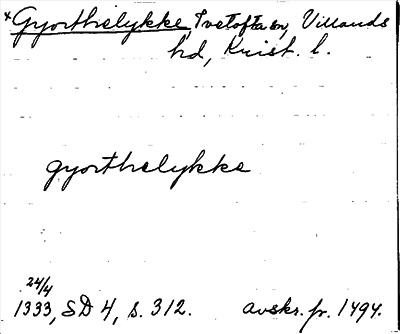 *Gyorthelykke, Tvetofta sn, Villands
hd, Krist. l.
gyorthelykke
24/4
1333, SD 4, s. 312. avskr. fr. 1494.